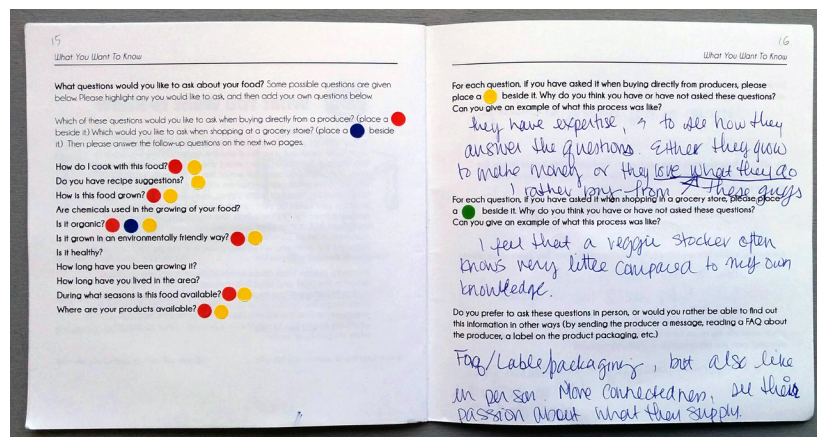 15
What You Want To Know
What questions would you like to ask about your food? Some possible questions are given
below. Please highlight any you would like to ask, and then add your own questions below.
Which of these questions would you like to ask when buying directly from a producer? (place a
beside it.) Which would you like to ask when shopping at a grocery store? (place a beside
it.) Then please answer the follow-up questions on the next two pages.
How do I cook with this food?
Do you have recipe suggestions?
How is this food grown?
Are chemicals used in the growing of your food?
Is it organic?
Is it grown in an environmentally friendly way?
Is it healthy?
How long have you been growing it?
How long have you lived in the area?
During what seasons is this food available?
Where are your products available?
16
What You Want To Know
For each question, if you have asked it when buying directly from producers, please
place a beside it. Why do you think you have or have not asked these questions?
Can you give an example of what this process was like?
they have expertise, & to see how they
answer the questions. Either they grow
to make money or they love what they do
I rather buy from these guys
For each question, if you have asked it when shopping in a grocery store, please place
a beside it. Why do you think you have or have not asked these questions?
Can you give an example of what this process was like?
I feel that a veggie stocker often
knows very little compared to my own
knowledge.
Do you prefer to ask these questions in person, or would you rather be able to find out
this information in other ways (by sending the producer a message, reading a FAQ about
the producer, a label on the product packaging, etc.)
Faq/Lable/packaging, but also like
in person. More connectedness, see their
passion about what they supply.